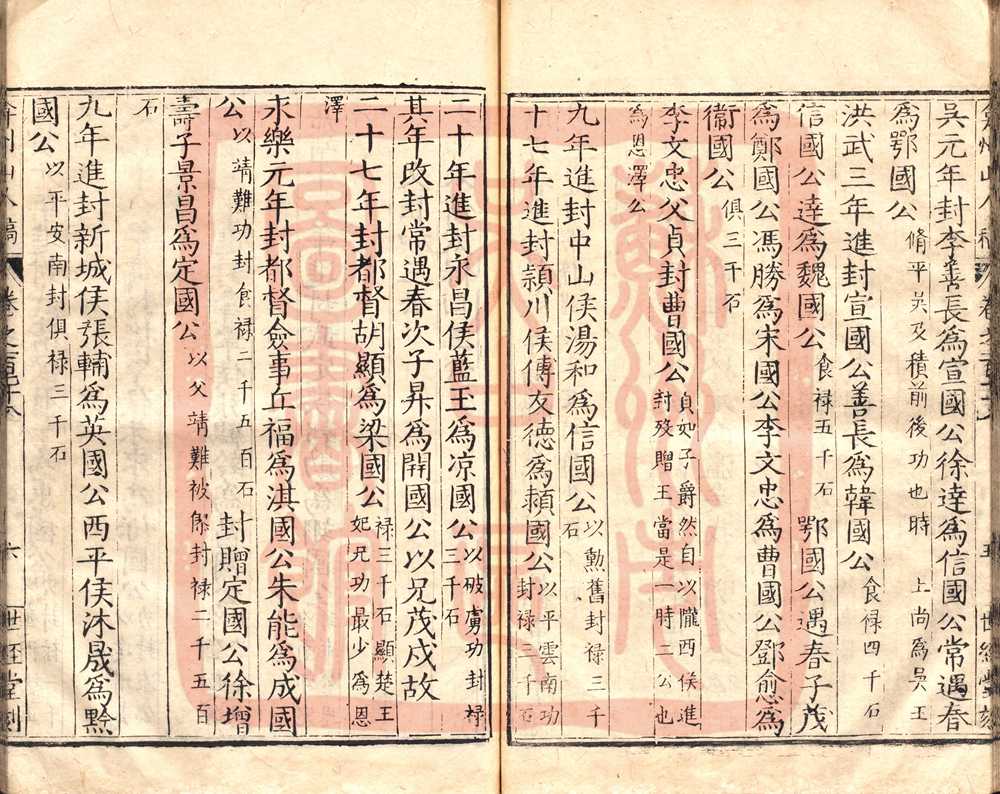 吳元年封李善長爲宣國公徐達爲信國公常遇春
爲鄂國公脩平吳及積前後功也時上尚爲吳王
洪武三年進封宣國公善長爲韓國公食禄四千石
信國公達爲魏國公食禄五千石鄂國公遇春子茂
爲鄭國公馮勝爲宋國公李文忠爲曹國公鄧愈爲
衞國公俱三千石
李文忠父貞封曹國公貞如子爵然自以隴西侯進封殁贈王當是一時二公也
爲恩澤公
九年進封中山侯湯和爲信國公以勲舊封禄三千石
十七年進封潁川侯傅友德爲潁國公以平雲南功封禄三千石
二十年進封永昌侯藍玉爲凉國公以破虜功封禄三千石
其年改封常遇春次子昇爲開國公以兄茂戍故
二十七年封都督胡顯爲梁國公禄三千石顯楚王妃兄功最少爲恩
澤
永樂元年封都督僉事丘福爲淇國公朱能爲成國
公以靖難功封食禄二千五百石封贈定國公徐增
壽子景昌爲定國公以父靖難被戮封禄二千五百
石
九年進封新城侯張輔爲英國公西平侯沐晟爲黔
國公以平安南封俱禄三千石
弇州山人稿 卷之百六十八 六 世經堂刻